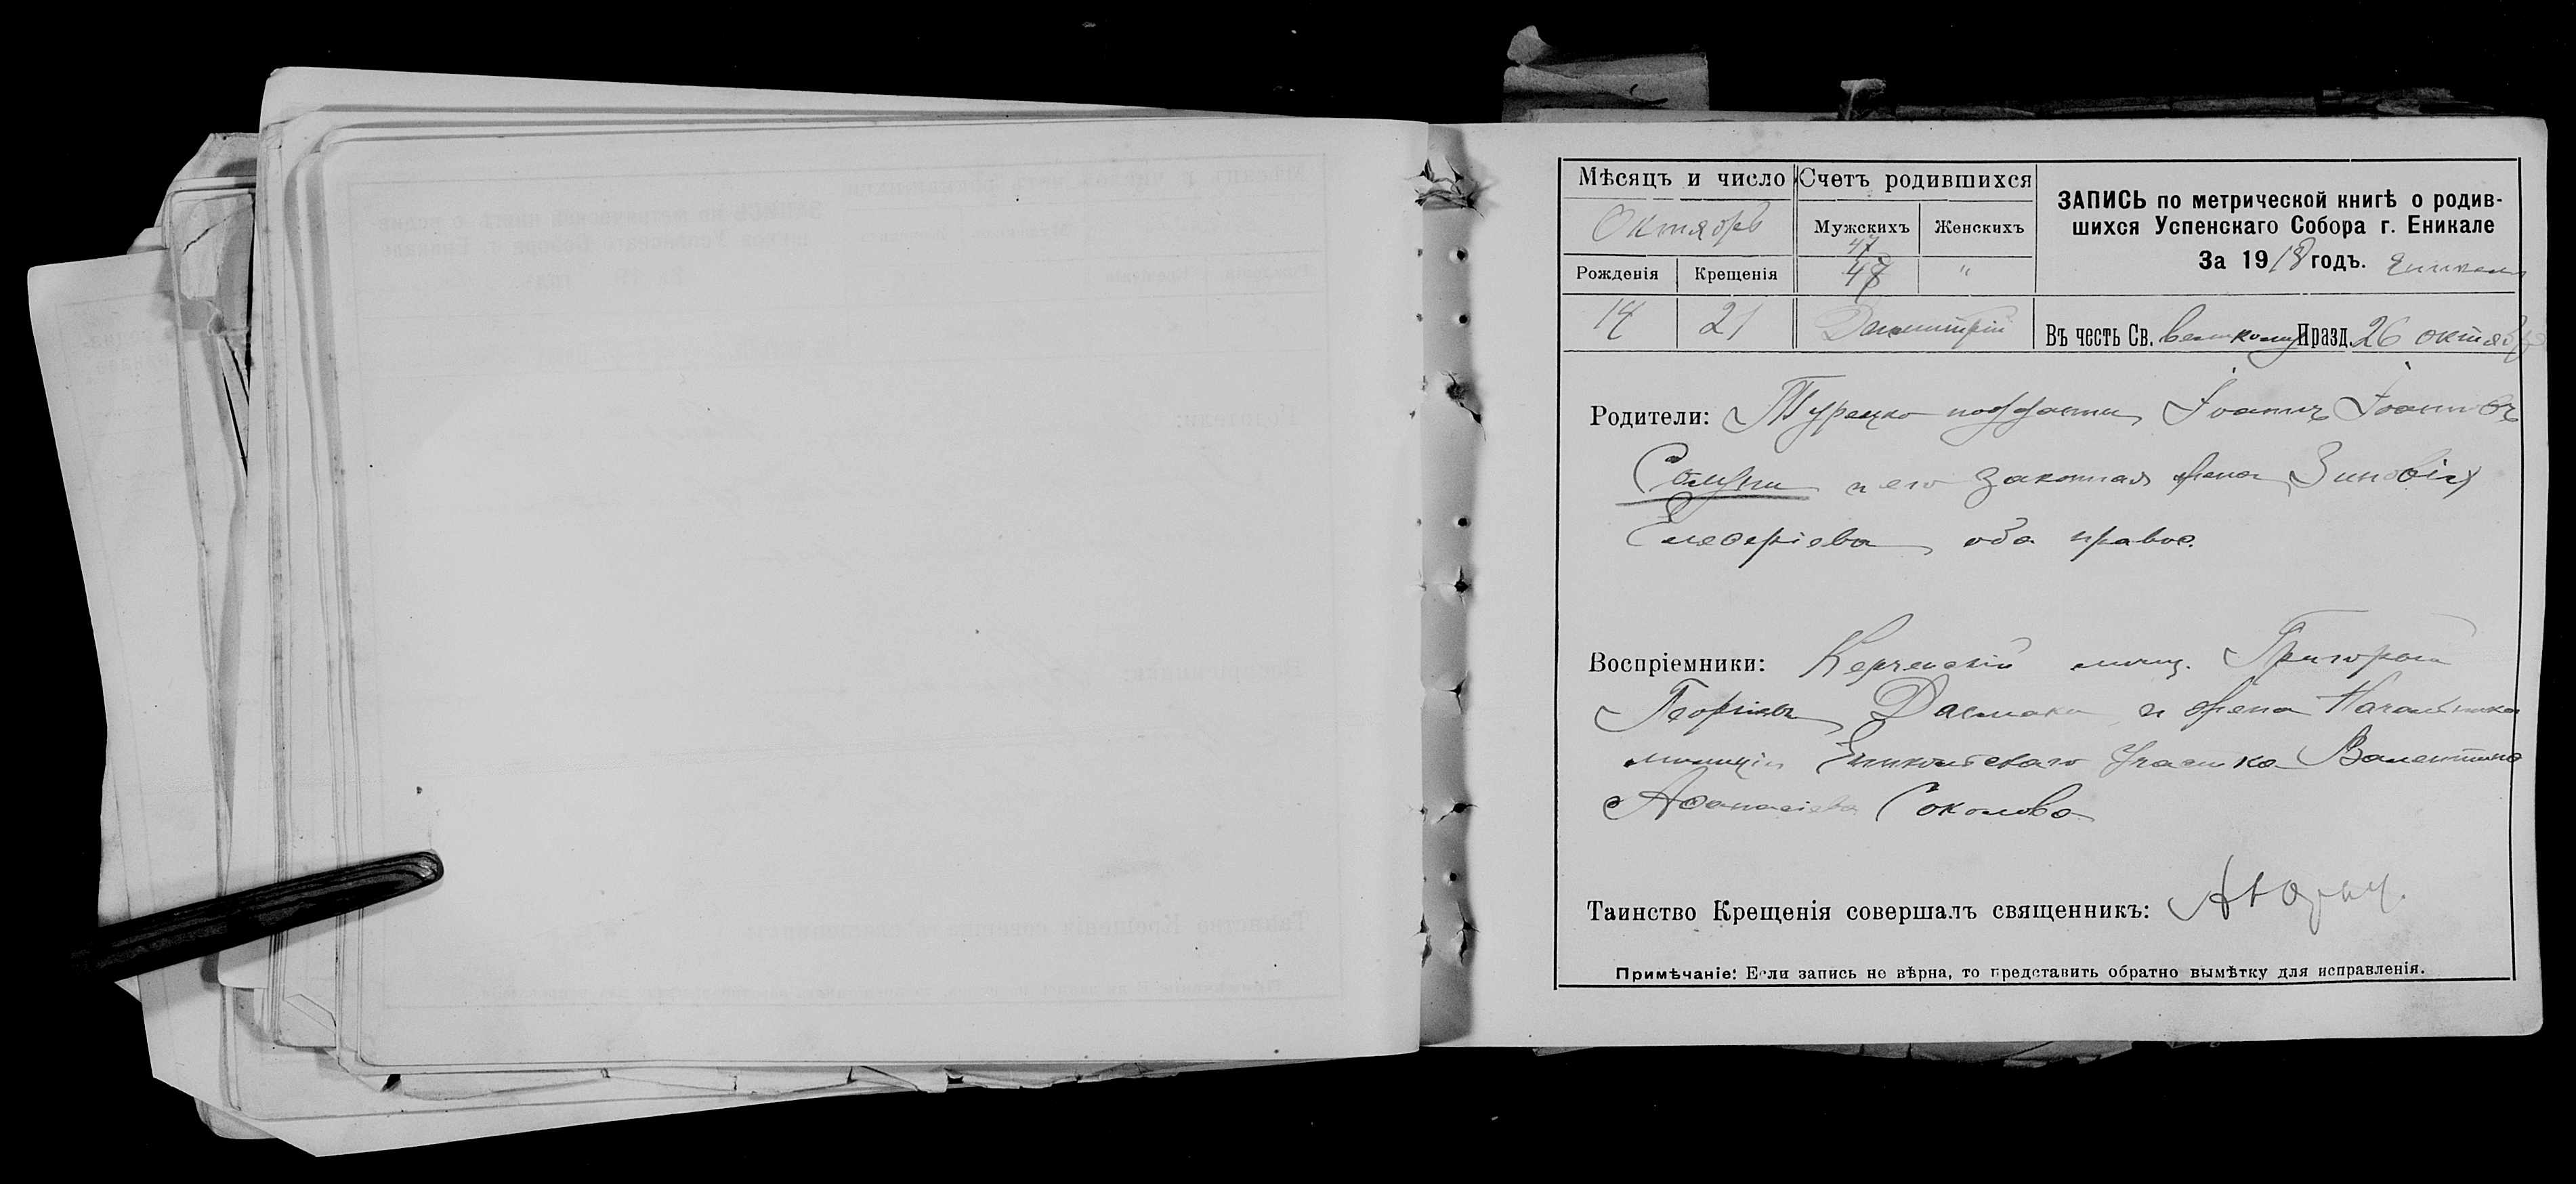 Мѣсяцъ и число Счетъ родившихся
ЗАПИСЬ по метрической книгѣ о родив-
шихся Успенскаго Собора г. Еникале
За 1918 годъ. Еникале
Октябрь Мужскихъ Женскихъ
47
Рожденія Крещенія 48 "
14 21 Димитрій Въ честь Св. великому Празд. 26 октября
Родители: Турецко поддан. Іоаннъ Іоанновъ
и его законная жена Зиновія
Елевѳеріева оба правос.
Воспріемники: Керченскій мѣщ. Григорій
Георгіевъ и жена Начальника
милиціи Еникольскаго участка Валентина
Аѳанасіева Соколова
Таинство Крещенія совершалъ священникъ:
Примѣчаніе: Если запись не вѣрна, то представить обратно вымѣтку для исправленія.